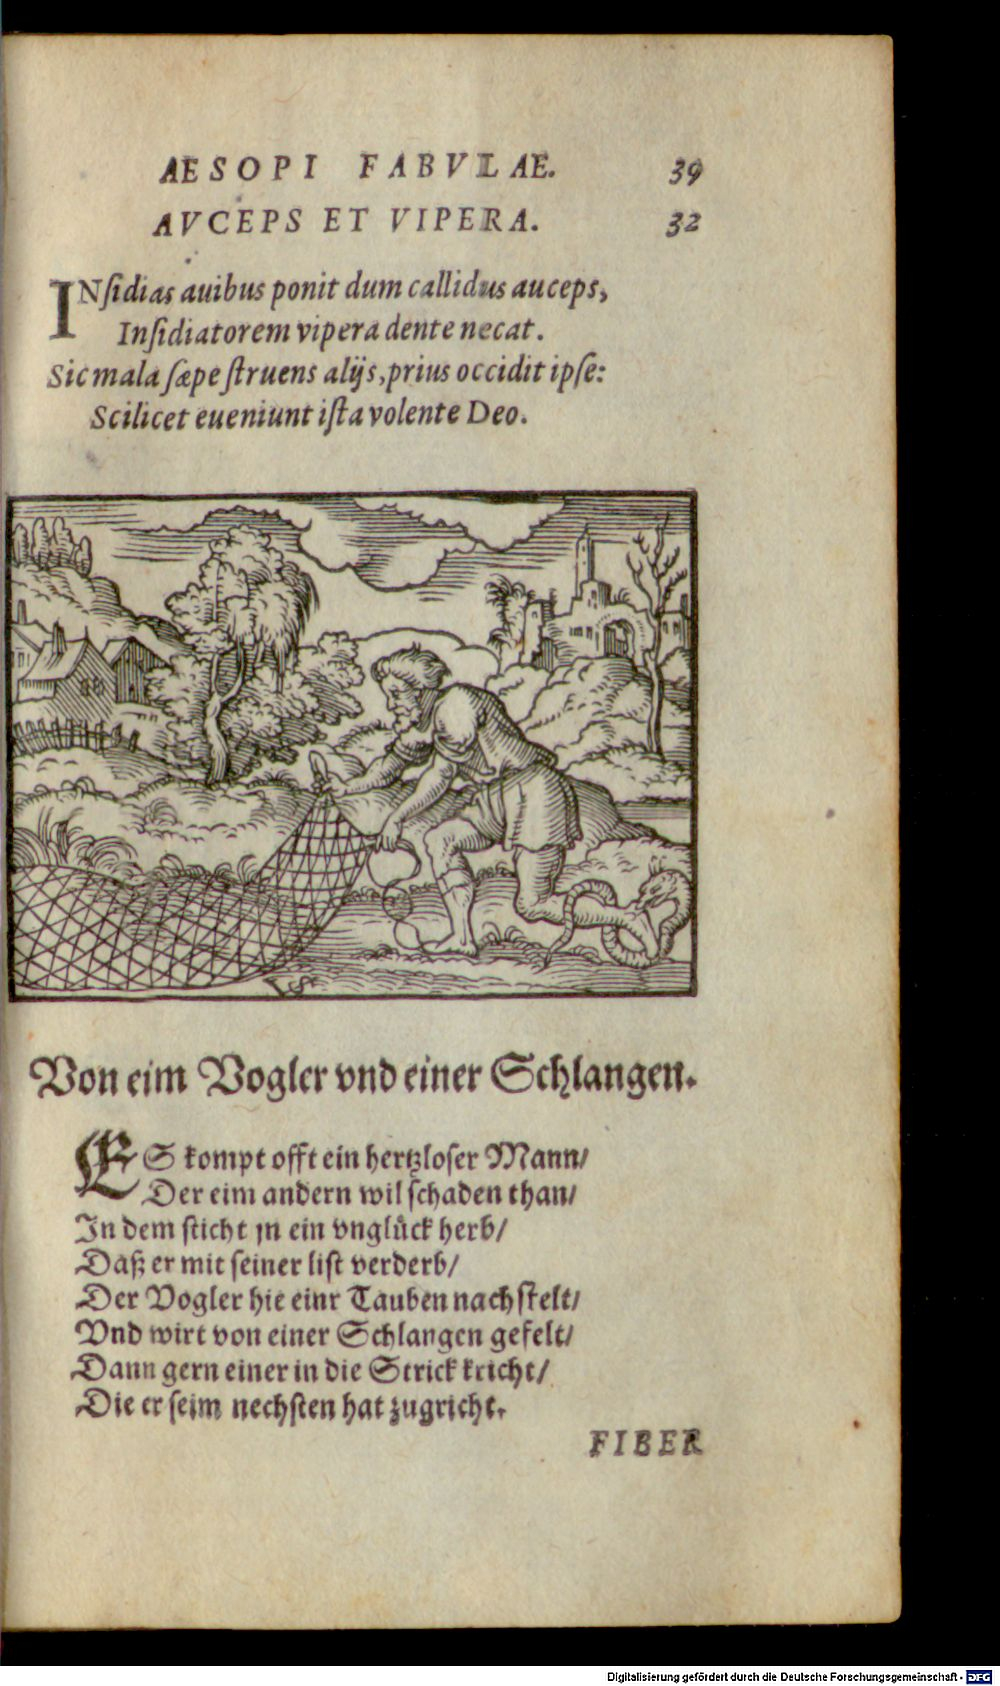 AESOPI FABVLAE. 39
AVCEPS ET VIPERA. 32
INſidias auibus ponit dum callidus auceps,
Inſidiatorem vipera dente necat.
Sic mala ſæpe ſtruens alijs, prius occidit ipſe:
Scilicet eueniunt iſta volente Deo.
VS
Von eim Vogler vnd einer Schlangen.
ES kompt offt ein hertzloſer Mann/
Der eim andern wil ſchaden than/
In dem ſticht jn ein vnglück herb/
Daß er mit ſeiner liſt verderb/
Der Vogler hie einr Tauben nach ſtelt/
Vnd wirt von einer Schlangen gefelt/
Dann gern einer in die Strick kricht/
Die er ſeim nechſten hat zugricht.
FIBER
Digitalisierung gefördert durch die Deutsche Forschungsgemeinschaft - DFG